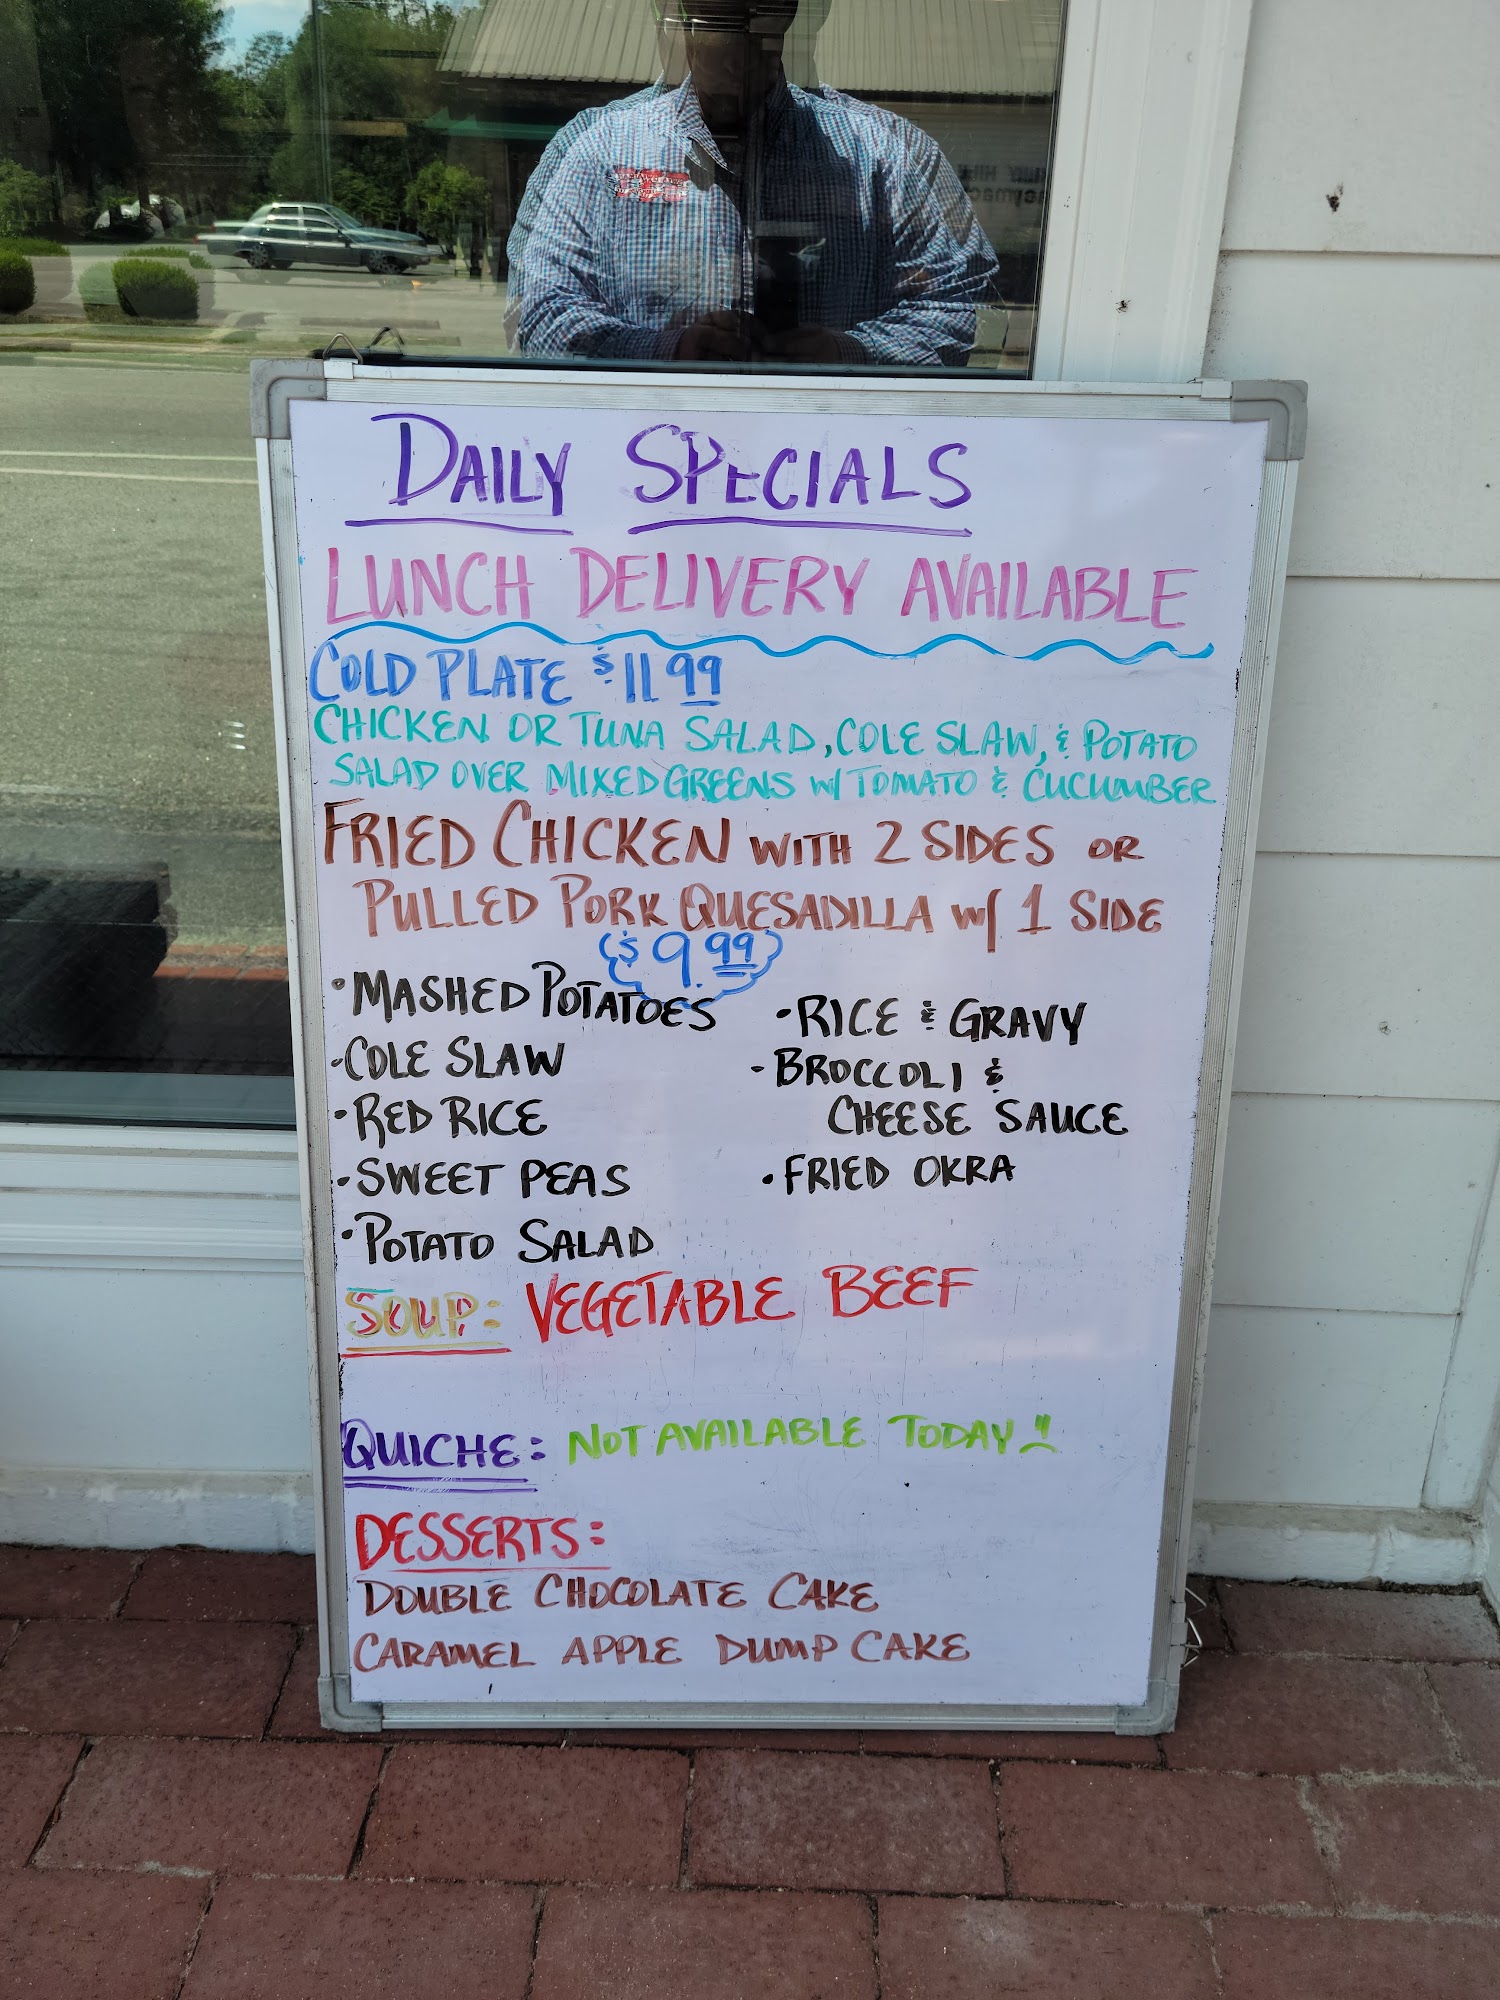 DAILY SPECIALS
LUNCH DELIVERY AVAILABLE
COLD PLATE $11.99
CHICKEN OR TUNA SALAD, COLE SLAW, & POTATO
SALAD OVER MIXED GREENS W/ TOMATO & CUCUMBER
FRIED CHICKEN WITH 2 SIDES OR
PULLED PORK QUESADILLA W/ 1 SIDE
$9.99
• MASHED POTATOES
• COLE SLAW
• RED RICE
• SWEET PEAS
• POTATO SALAD
• RICE & GRAVY
• BROCCOLI &
CHEESE SAUCE
• FRIED OKRA
SOUP: VEGETABLE BEEF
QUICHE: NOT AVAILABLE TODAY
DESSERTS:
DOUBLE CHOCOLATE CAKE
CARAMEL APPLE DUMP CAKE